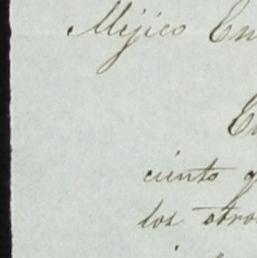 Méjico En
E
ciento q
los otro